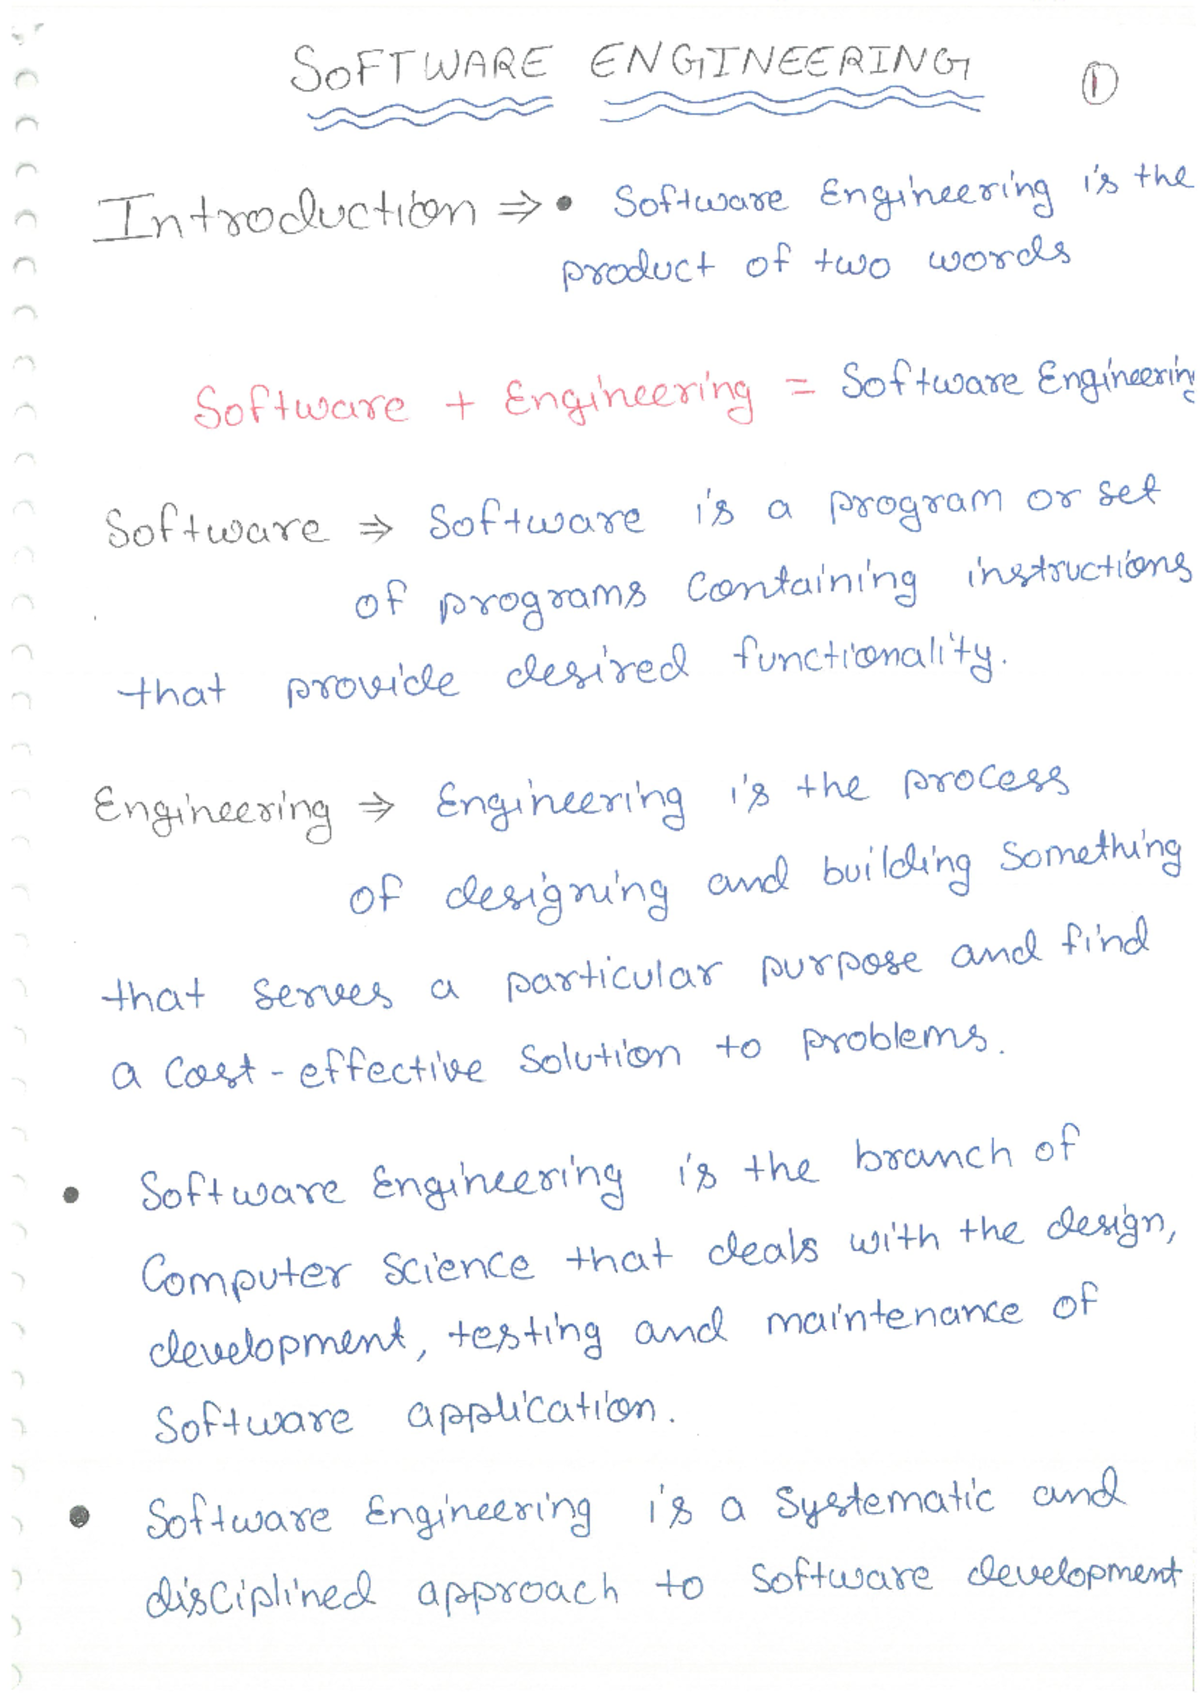 SOFTWARE ENGINEERING 1
Introduction ⇒ • Software Engineering is the
product of two words
Software + Engineering = Software Engineering
Software ⇒ Software is a program or set
of programs containing instructions
that provide desired functionality.
Engineering ⇒ Engineering is the process
of designing and building something
that serves a particular purpose and find
a cost-effective solution to problems.
• Software Engineering is the branch of
Computer science that deals with the design,
development, testing and maintenance of
Software application.
• Software Engineering is a Systematic and
disciplined approach to software development